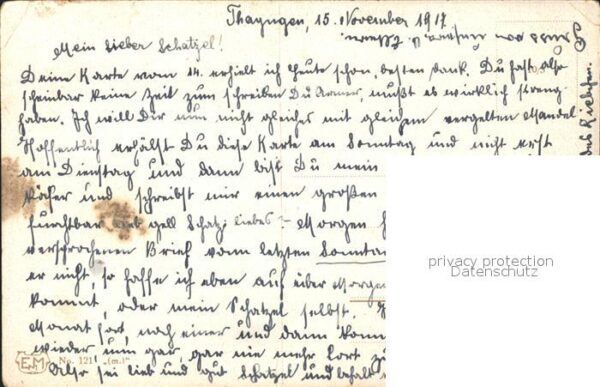 Thayngen, 15. November 1917
Mein lieber Schatzel!
Gruss von unsern l. Eltern.
Deine Karte vom 14. erhielt ich heute schon, besten Dank. Du hast also
scheinbar keine Zeit zum schreiben Du Armer, mußt es wirklich streng
haben. Ich will Dir nun nicht gleiches mit gleichem vergelten Mandel
Hoffentlich erhälst Du diese Karte am Sonntag und nicht erst
am Dienstag und dann bist Du mein
Käfer und schreibst mir einen großen
furchtbar lieb gell Schatz liebes - Morgen
versprochenen Brief vom letzten Sonntag
er nicht, so hoffe ich eben auf über Morgen
kommt, oder mein Schatzel selbst.
Monat fort, noch einer und dann
wieder und gar, gar nie mehr fort
Also sei lieb und gut Schatzel und behalt
privacy protection
Datenschutz
EMM
No. 121 (m.)